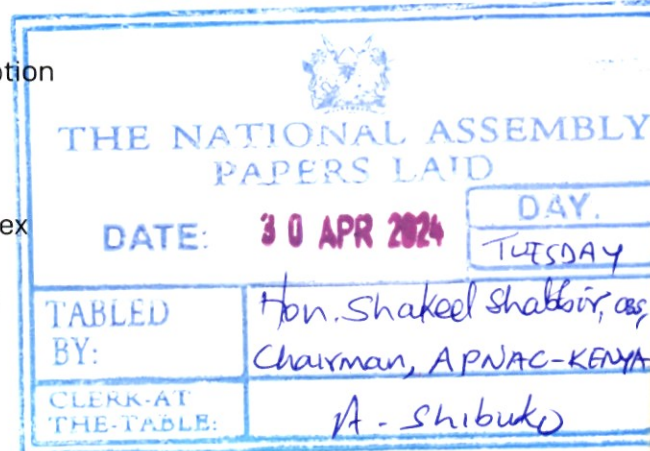 tion
THE NATIONAL ASSEMBLY
PAPERS LAID
ex
DATE: 30 APR 2024
DAY.
TUESDAY
TABLED BY:
Hon. Shakeel Shabbir, OBS,
Chairman, APNAC-KENYA
CLERK-AT
THE-TABLE:
A. Shibuko